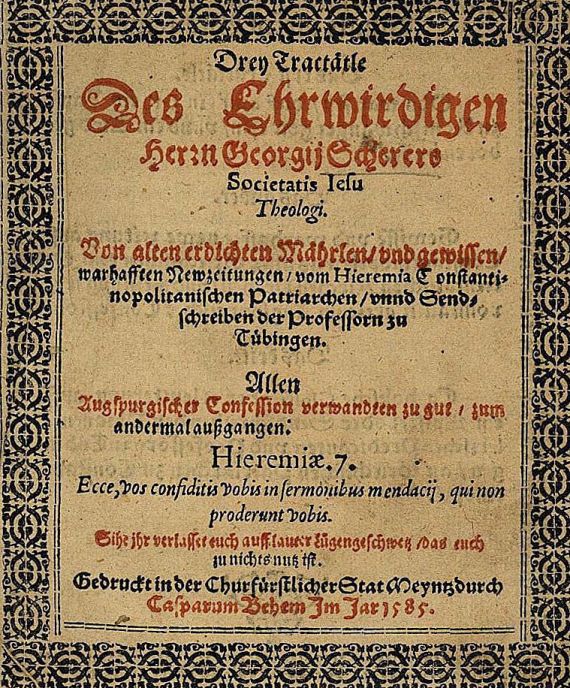 Drey Tractätle
Des Ehrwirdigen
Herrn Georgij Scherers
Societatis Iesu
Theologi.
Von alten erdichten Mährlen/ vnd gewissen/
warhafften Newzeitungen/ vom Hieremia Constanti-
nopolitanischen Patriarchen/ vnnd Send-
schreiben der Professorn zu
Tübingen.
Allen
Augspurgischer Confession verwandten zu gut/ zum
andermal außgangen.
Hieremiæ. 7.
Ecce, vos confiditis vobis in sermonibus mendacij, qui non
proderunt vobis.
Sihe jhr verlasset euch auff lauter Lügengeschwetz/ das euch
zu nichts nutz ist.
Gedruckt in der Churfürstlicher Stat Meyntz durch
Casparum Behem Im Jar 1585.